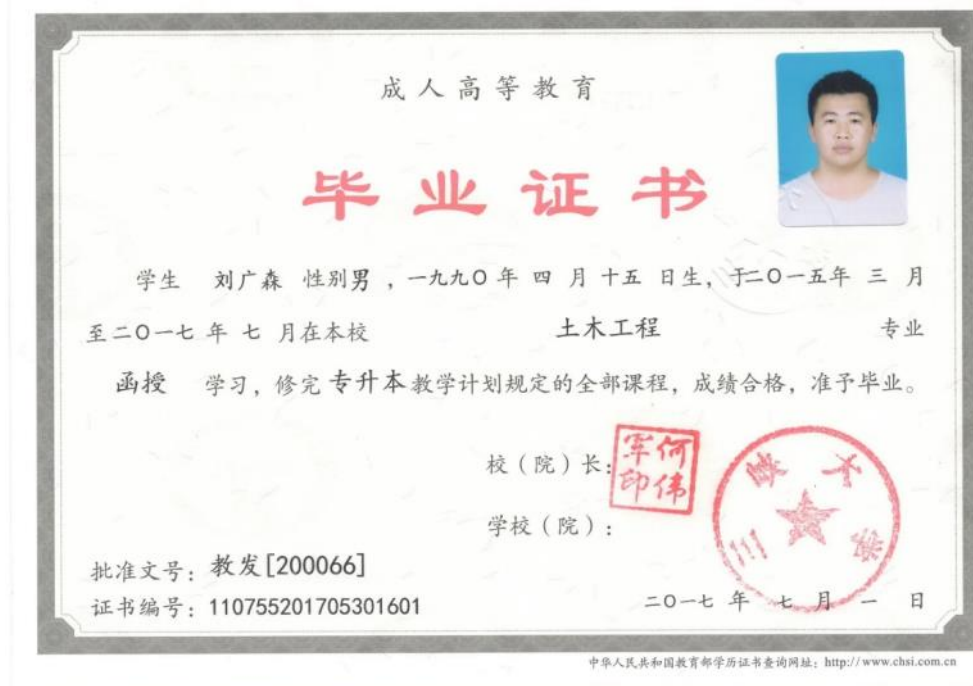 成人高等教育
毕业证书
学生 刘广森 性别男，一九九〇年 四 月 十五 日生，于二〇一五年 三 月
至二〇一七 年 七 月在本校 土木工程 专业
函授 学习，修完 专升本 教学计划规定的全部课程，成绩合格，准予毕业。
校（院）长：
何伟军印
学校（院）：
三峡大学
批准文号：教发[200066]
证书编号：110755201705301601
二〇一七 年 七 月 一 日
中华人民共和国教育部学历证书查询网址：http://www.chsi.com.cn